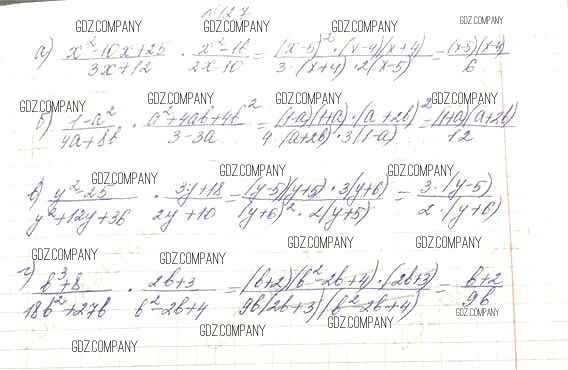 №127
GDZ.COMPANY GDZ.COMPANY GDZ.COMPANY GDZ.COMPANY
а) (x²-10x+25)/(3x+12) · (x²-16)/(2x-10) = ((x-5)²·(x-4)(x+4))/(3·(x+4)·2(x-5)) = ((x-5)(x-4))/6
GDZ.COMPANY GDZ.COMPANY GDZ.COMPANY GDZ.COMPANY
б) (1-a²)/(4a+8b) · (a²+4ab+4b²)/(3-3a) = ((1-a)(1+a)·(a+2b)²)/(4·(a+2b)·3(1-a)) = ((1+a)(a+2b))/12
GDZ.COMPANY GDZ.COMPANY GDZ.COMPANY
в) (y²-25)/(y²+12y+36) · (3y+18)/(2y+10) = ((y-5)(y+5)·3(y+6))/((y+6)²·2(y+5)) = (3·(y-5))/(2·(y+6))
GDZ.COMPANY GDZ.COMPANY GDZ.COMPANY GDZ.COMPANY
г) (b³+8)/(18b²+27b) · (2b+3)/(b²-2b+4) = ((b+2)(b²-2b+4)·(2b+3))/(9b(2b+3)(b²-2b+4)) = (b+2)/9b
GDZ.COMPANY GDZ.COMPANY GDZ.COMPANY
GDZ.COMPANY